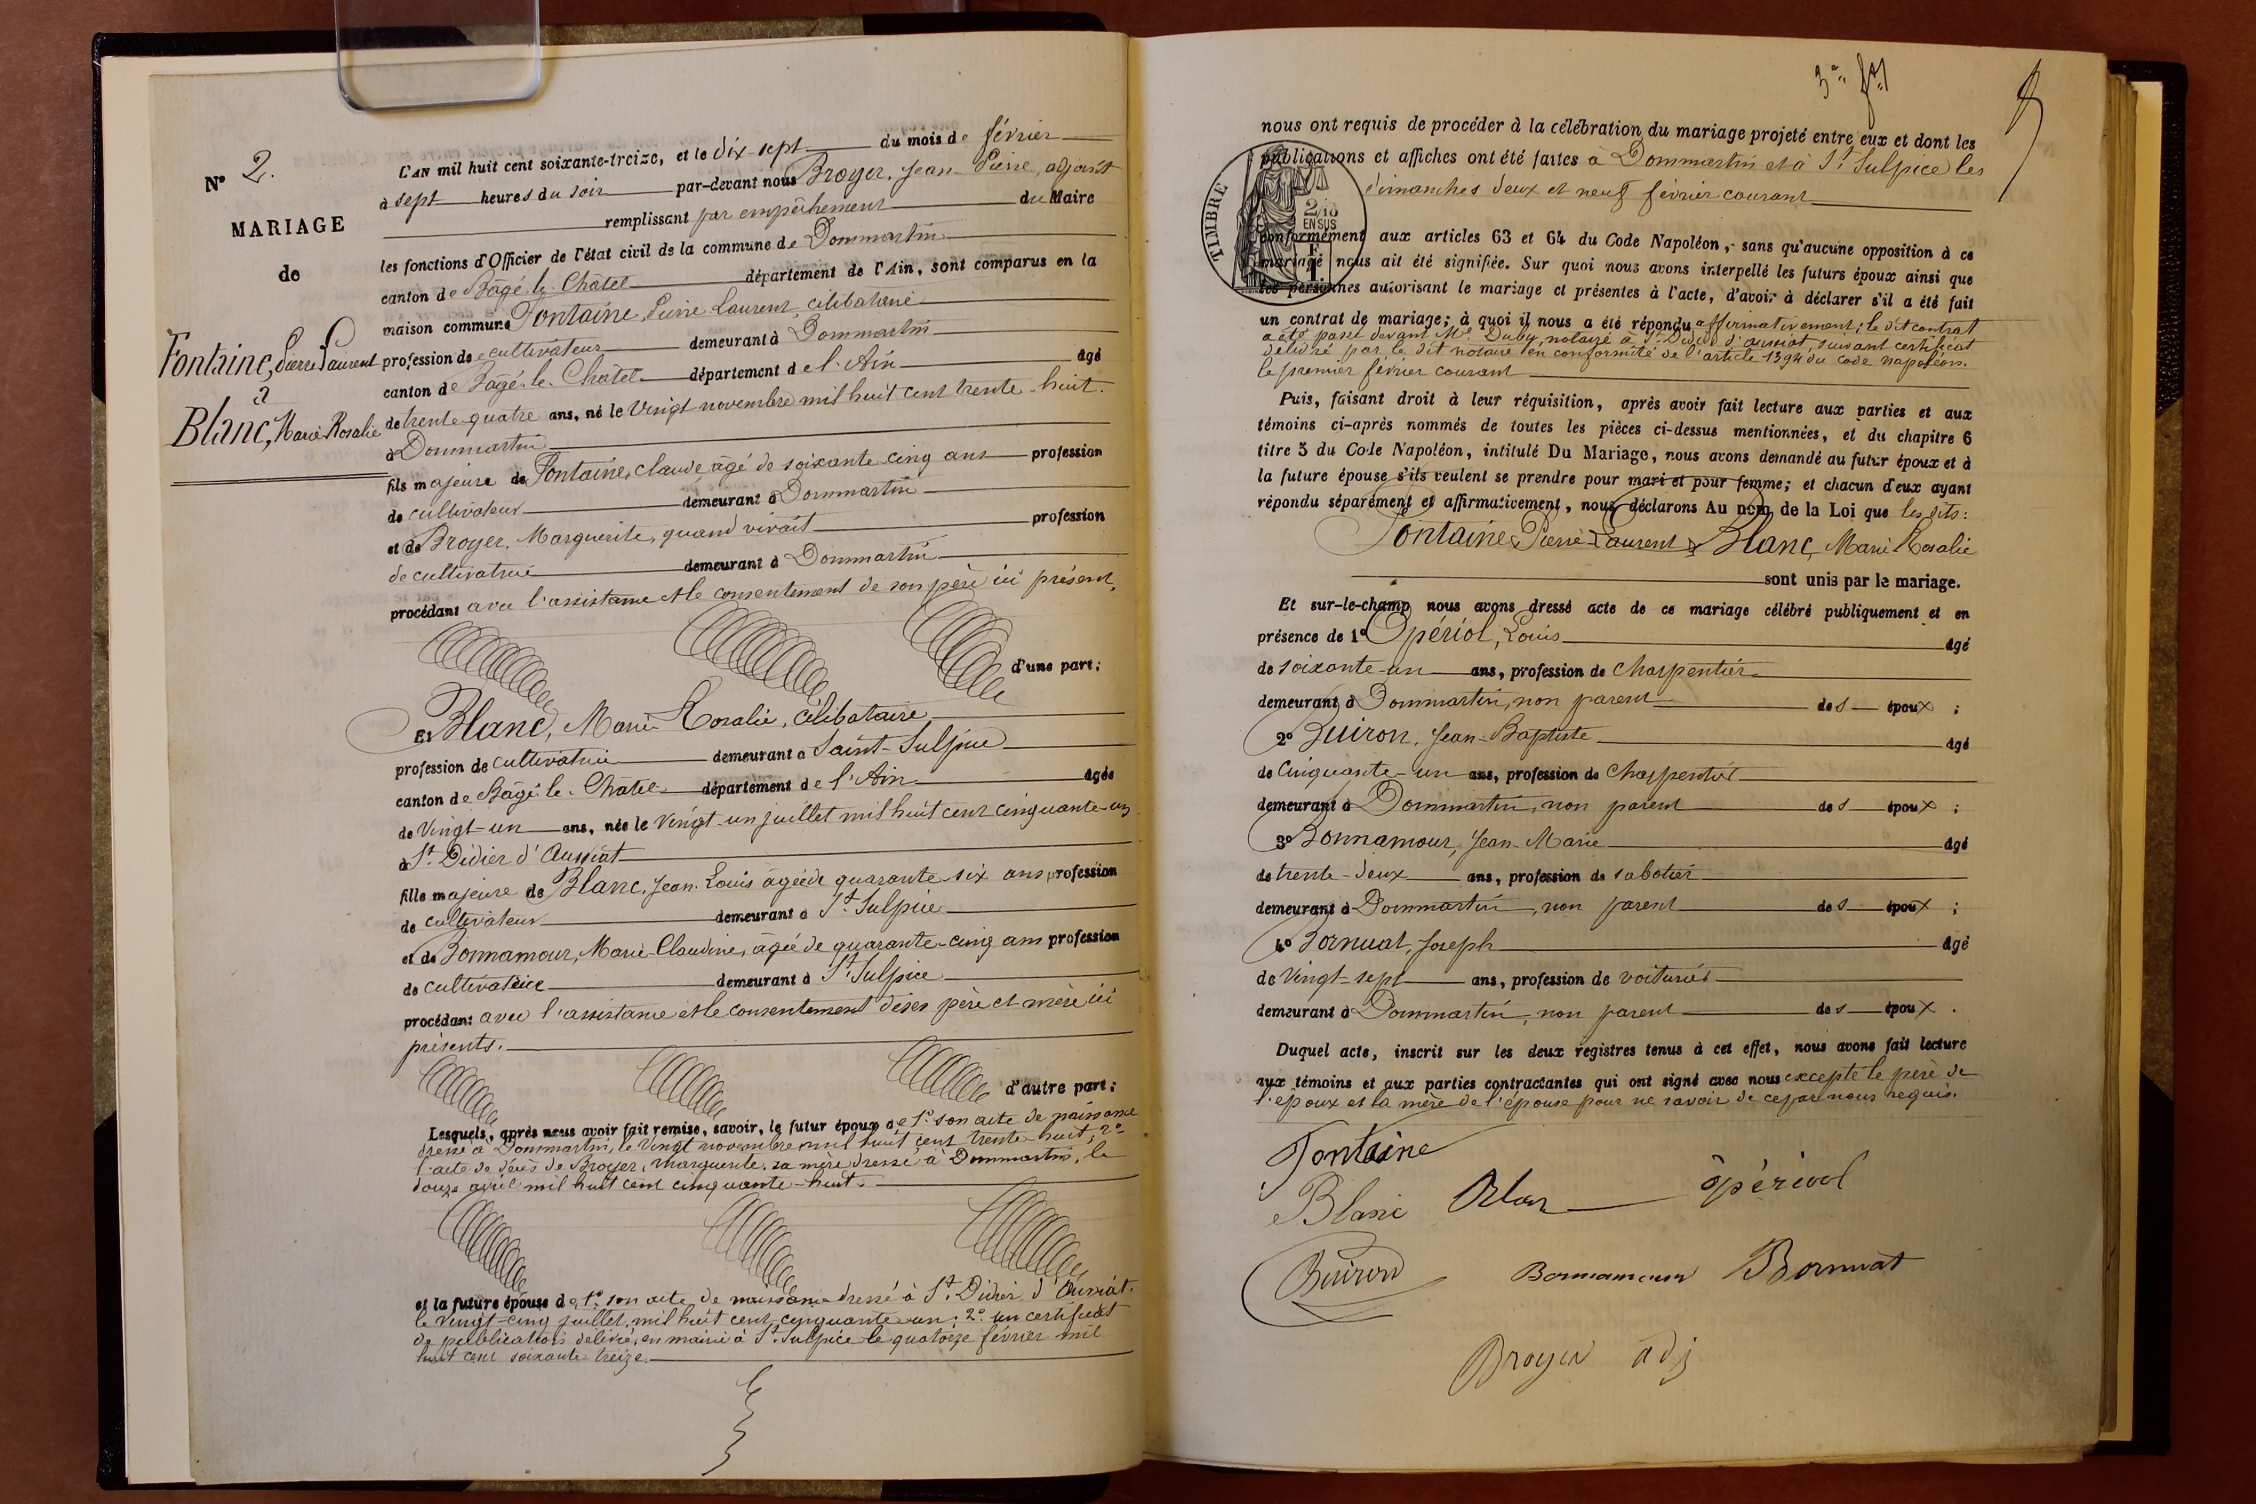 N° 2.
MARIAGE
de
Fontaine, Pierre Laurent
à
Blanc, Marie Rosalie
L'AN mil huit cent soixante-treize, et le dix-sept du mois de février
à sept heures du soir par-devant nous Broyer, Jean-Pierre, adjoint
remplissant par empêchement du Maire
les fonctions d'Officier de l'état civil de la commune de Dommartin
canton de Bâgé-le-Châtel département de l'Ain, sont comparus en la
maison commune Fontaine, Pierre Laurent, célibataire
profession de cultivateur demeurant à Dommartin
canton de Bâgé-le-Châtel département de l'Ain âgé
de trente-quatre ans, né le Vingt novembre mil huit cent trente-huit.
à Dommartin
fils majeure de Fontaine, Claude, âgé de soixante-cinq ans profession
de cultivateur demeurant à Dommartin
et de Broyer, Marguerite, quand vivait profession
de cultivatrice demeurant à Dommartin
procédant avec l'assistance et le consentement de son père ici présent,
d'une part;
Et Blanc, Marie Rosalie, célibataire
profession de cultivatrice demeurant à Saint-Sulpice
canton de Bâgé-le-Châtel département de l'Ain âgée
de Vingt-un ans, née le Vingt-un juillet mil huit cent cinquante-un
à St. Didier d'Aussiat
fille majeure de Blanc, Jean-Louis âgé de quarante-six ans profession
de cultivateur demeurant à St. Sulpice
et de Bonnamour, Marie-Claudine, âgée de quarante-cinq ans profession
de cultivatrice demeurant à St. Sulpice
procédant avec l'assistance et le consentement de ses père et mère ici
présents.
d'autre part;
Lesquels, après nous avoir fait remise, savoir, le futur époux de 1° son acte de naissance
dressé à Dommartin, le vingt novembre mil huit cent trente-huit; 2°
l'acte de décès de Broyer, Marguerite, sa mère dressé à Dommartin, le
douze avril mil huit cent cinquante-huit.
et la future épouse de 1° son acte de naissance dressé à St. Didier d'Aussiat.
le vingt-cinq juillet, mil huit cent cinquante-un; 2° un certificat
de publications délivré, en mairie à St. Sulpice le quatorze février mil
huit cent soixante treize.
nous ont requis de procéder à la célébration du mariage projeté entre eux et dont les
publications et affiches ont été faites à Dommartin et à St. Sulpice les
dimanches deux et neuf février courant
TIMBRE
2/10
EN SUS
conformément aux articles 63 et 64 du Code Napoléon, sans qu'aucune opposition à ce
mariage nous ait été signifiée. Sur quoi nous avons interpellé les futurs époux ainsi que
les personnes autorisant le mariage et présentes à l'acte, d'avoir à déclarer s'il a été fait
un contrat de mariage; à quoi il nous a été répondu affirmativement; le dit contrat
a été passé devant Me. Duby, notaire à St. Didier d'Aussiat, suivant certificat
délivré par le dit notaire en conformité de l'article 1394 du code napoléon.
le premier février courant
Puis, faisant droit à leur réquisition, après avoir fait lecture aux parties et aux
témoins ci-après nommés de toutes les pièces ci-dessus mentionnées, et du chapitre 6
titre 5 du Code Napoléon, intitulé Du Mariage, nous avons demandé au futur époux et à
la future épouse s'ils veulent se prendre pour mari et pour femme; et chacun d'eux ayant
répondu séparément et affirmativement, nous déclarons Au nom de la Loi que les dits:
Fontaine, Pierre Laurent & Blanc, Marie Rosalie
sont unis par le mariage.
Et sur-le-champ nous avons dressé acte de ce mariage célébré publiquement et en
présence de 1° Opériol, Louis âgé
de soixante-un ans, profession de charpentier
demeurant à Dommartin, non parent des époux ;
2° Buiron, Jean-Baptiste âgé
de Cinquante-un ans, profession de charpentier
demeurant à Dommartin, non parent des époux ;
3° Bonnamour, Jean-Marie âgé
de trente-deux ans, profession de sabotier
demeurant à Dommartin, non parent des époux ;
4° Bornuat, Joseph âgé
de Vingt-sept ans, profession de voiturier
demeurant à Dommartin, non parent des époux .
Duquel acte, inscrit sur les deux registres tenus à cet effet, nous avons fait lecture
aux témoins et aux parties contractantes qui ont signé avec nous excepté le père de
l'époux et la mère de l'épouse pour ne savoir de ce par nous requis.
Fontaine
Blanc opériol
Buiron Bonnamour Bornuat
Broyer adj